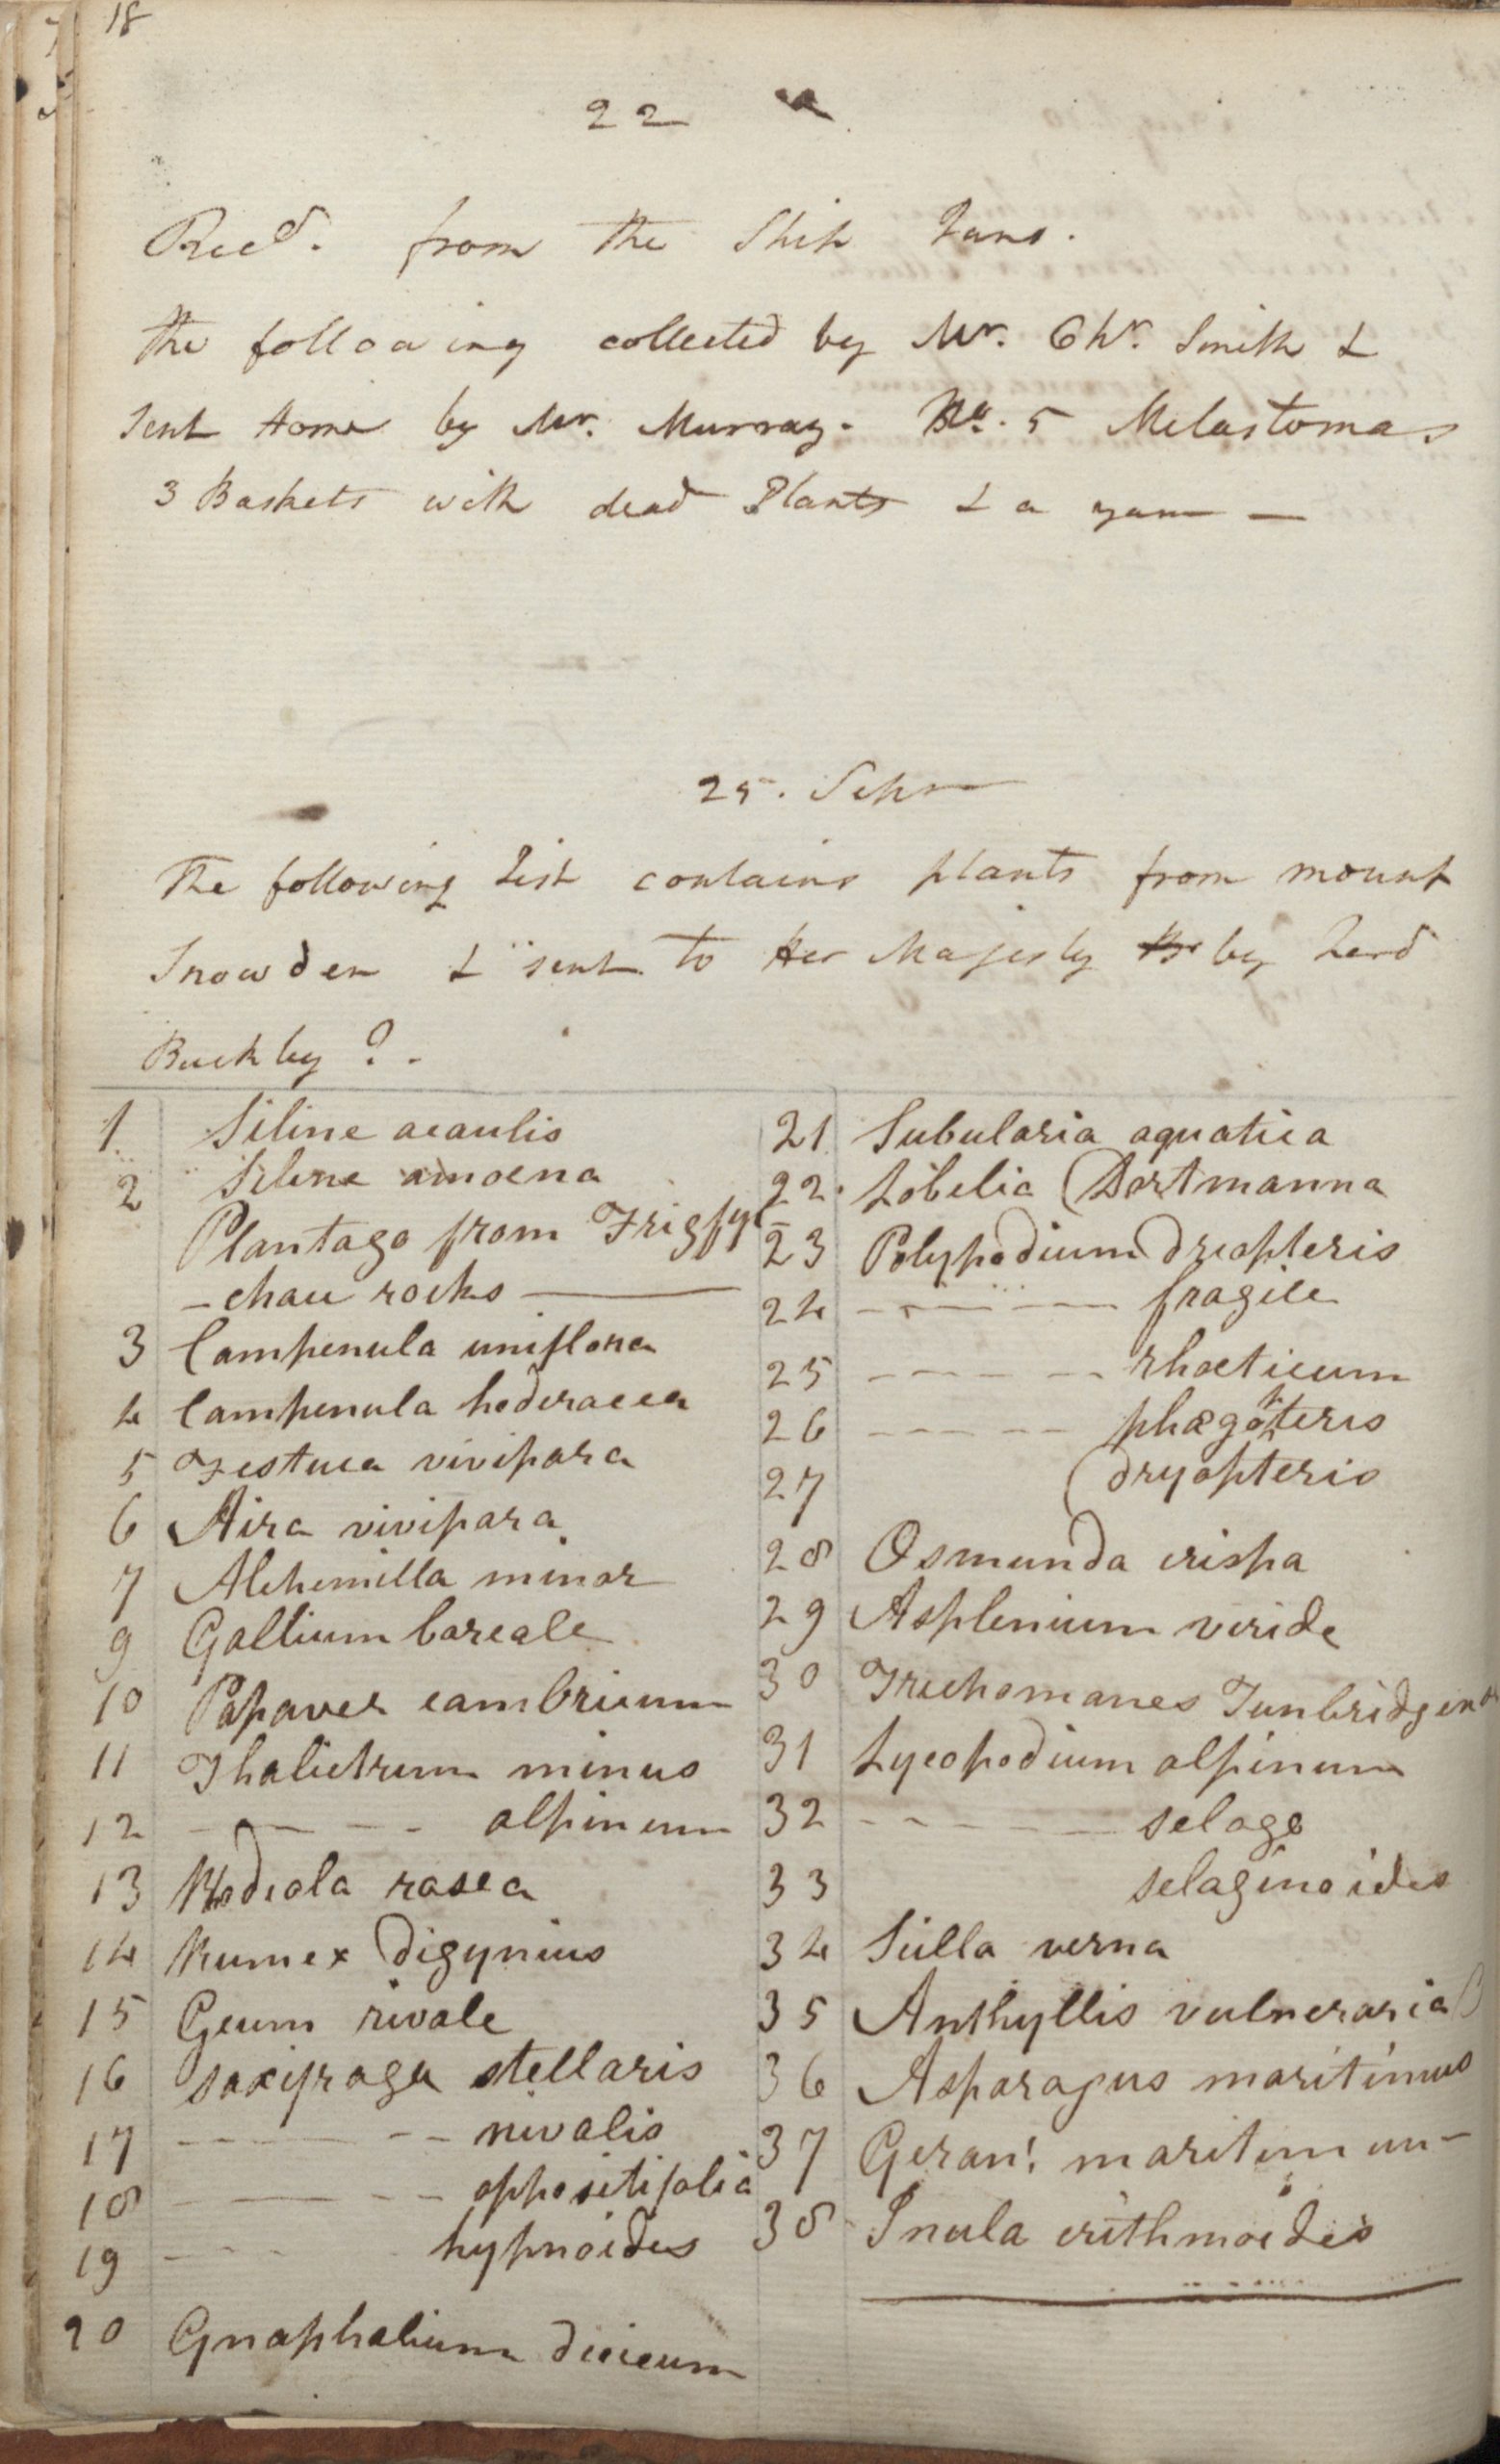 18
22
Recd. from the Ship
the following collected by Mr. Chr. Smith &
sent home by Mr. Murray. No. 5 Melastomas
3 Baskets with dead Plants & a yam —
25. Sepr
The following list contains plants from mount
Snowden & sent to Her Majesty by Lord
Buckley ? .
1 Siline acaulis
2 Silene amoena
Plantago from Trigfyl
- chau rocks —
3 Campenula uniflora
4 Campenula hederacea
5 Festuca vivipara
6 Aira vivipara
7 Alchemilla minor
9 Gallium boreale
10 Papaver cambricum
11 Thalictrum minus
12 - - - - alpinum
13 Rhodiola rosea
14 Rumex digynius
15 Geum rivale
16 saxifraga stellaris
17 - - - - nivalis
18 - - - - oppositifolia
19 - - - hypnoides
20 Gnaphalium dioicum
21 Subularia aquatica
22 Lobelia Dortmanna
23 Polypodium dreopteris
24 - - - - fragile
25 - - - - rhoeticum
26 - - - - phaegopteris
27 dryopteris
28 Osmunda crispa
29 Asplenium viride
30 Trichomanes
31 Lycopodium alpinum
32 - - - - selago
33 selaginoides
34 Scilla verna
35 Anthyllis vulneraria
36 Asparagus maritimus
37 Geran: maritimum -
38 Inula crithmoides